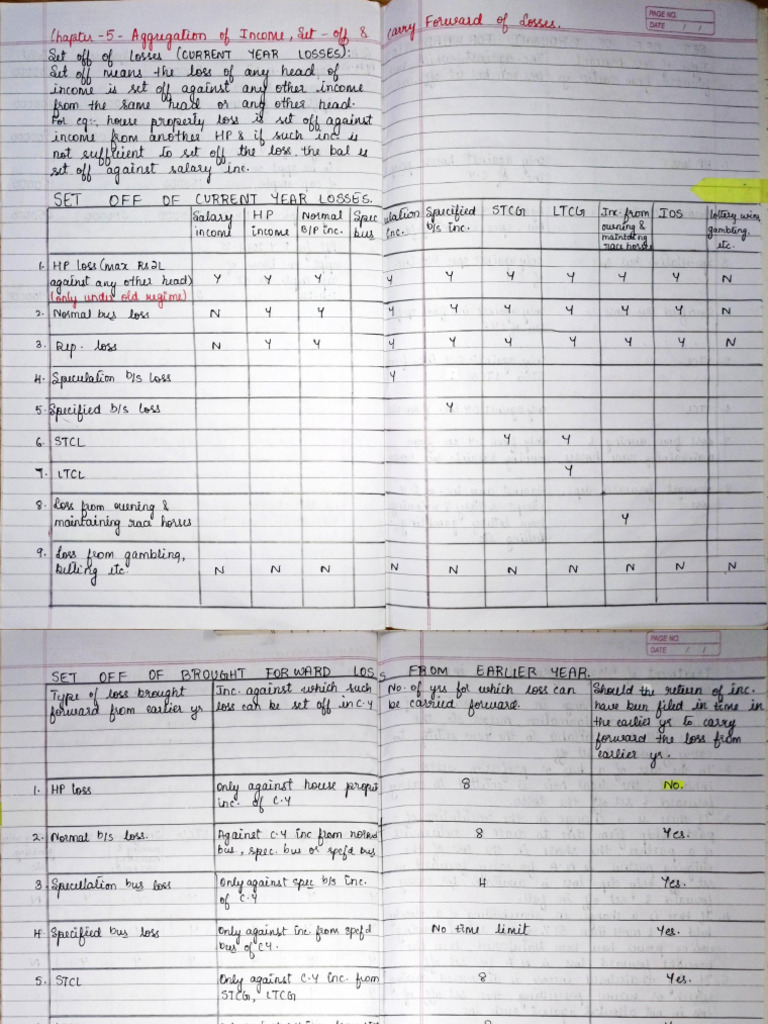 Chapter -5- Aggregation of Income, Set - off & Carry Forward of Losses.
PAGE NO.
DATE / /
Set off of Losses (CURRENT YEAR LOSSES):
Set off means the loss of any head of
income is set off against any other income
from the same head or any other head.
For eg:-, house property loss is set off against
income from another HP & if such inc is
not sufficient to set off the loss, the bal is
set off against salary inc.
SET OFF OF CURRENT YEAR LOSSES.
Salary income | HP income | Normal B/P inc. | Speculation bus inc. | Specified b/s inc. | STCG | LTCG | Inc. from owning & maintaining race horses | IOS | lottery, wing gambling, etc.
1. HP loss (max Rs 2L against any other head) (only under old regime) Y Y Y Y Y Y Y Y Y N
2. Normal bus loss N Y Y Y Y Y Y Y Y N
3. Dep. loss N Y Y Y Y Y Y Y Y N
4. Speculation b/s loss Y
5. Specified b/s loss Y
6. STCL Y Y
7. LTCL Y
8. Loss from owning & maintaining race horses Y
9. Loss from gambling, betting etc. N N N N N N N N N N
PAGE NO.
DATE / /
SET OFF OF BROUGHT FORWARD LOSS FROM EARLIER YEAR.
Type of loss brought forward from earlier yrs | Inc. against which such loss can be set off in C.Y | No. of yrs for which loss can be carried forward. | Should the return of inc. have been filed in time in the earlier yrs to carry forward the loss from earlier yrs.
1. HP loss | Only against house proper inc. of C.Y | 8 | No.
2. Normal b/s loss. | Against C.Y inc from normal bus, spec. bus or spcfd bus | 8 | Yes.
3. Specullation bus loss | Only against spec b/s inc. of C.Y | 4 | Yes.
4. Specified bus loss | Only against inc. from spcfd bus of C.Y. | No time limit | Yes.
5. STCL | Only against C.Y inc. from STCG, LTCG | 8 | Yes.